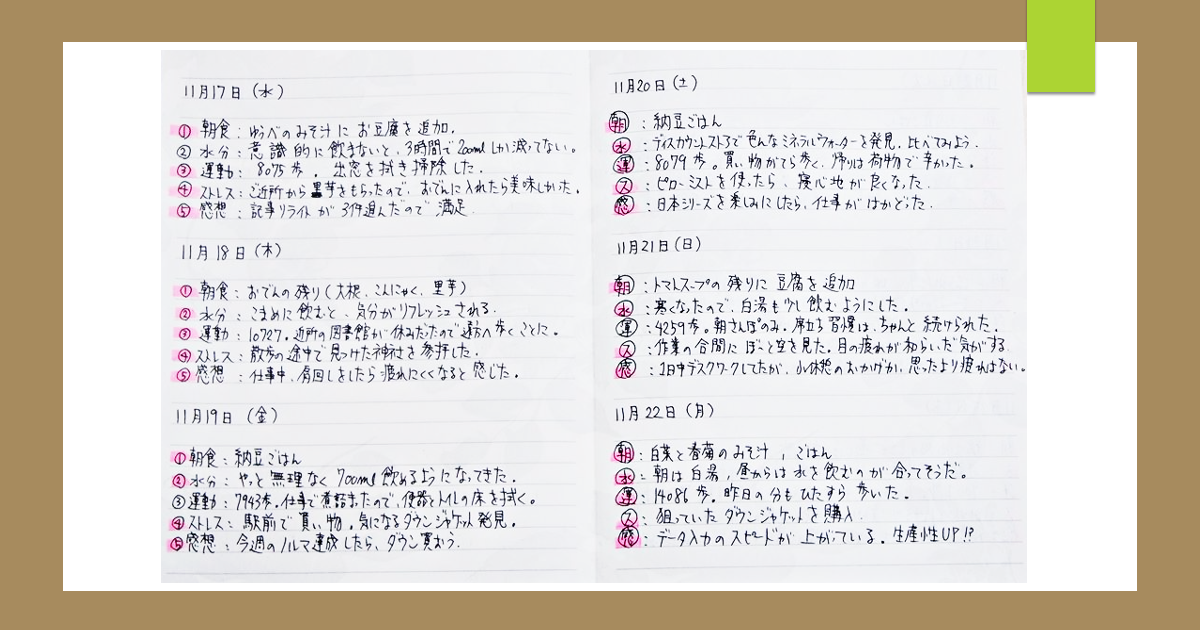 11月17日（水）
① 朝食：ゆうべのみそ汁に お豆腐を追加.
② 水分：意識的に飲まないと、3時間で200mlしか減ってない。
③ 運動：8075歩 . 出窓を拭き掃除した.
④ ストレス：ご近所から里芋をもらったので、おでんに入れたら美味しかった.
⑤ 感想：記事リライトが3件進んだので 満足.
11月18日（木）
① 朝食：おでんの残り(大根、こんにゃく、里芋)
② 水分：こまめに飲むと、気分がリフレッシュされる.
③ 運動：10727. 近所の図書館が休みだったので遠方へ歩くことに.
④ ストレス：散歩の途中で見つけた神社を参拝した.
⑤ 感想：仕事中、肩回しをしたら疲れにくくなると感じた.
11月19日（金）
① 朝食：納豆ごはん
② 水分：やっと無理なく700ml飲めるようになってきた.
③ 運動：7943歩. 仕事で煮詰まったので、便器とトイレの床を拭く。
④ ストレス：駅前で買い物. 気になるダウンジャケット発見.
⑤ 感想：今週のノルマ達成したら、ダウン買おう.
11月20日（土）
朝：納豆ごはん
水：ディスカウントストアで色んなミネラルウォーターを発見. 比べてみよう.
運：8079歩。買い物がてら歩く. 帰りは荷物で辛かった.
ス：ピローミストを使ったら、寝心地が良くなった.
感：日本シリーズを楽しみにしたら、仕事がはかどった.
11月21日（日）
朝：トマトスープの残りに豆腐を追加
水：寒くなったので、白湯も少し飲むようにした.
運：4259歩。朝さんぽのみ. 席立ち習慣は、ちゃんと続けられた.
ス：作業の合間にぼーと空を見た. 目の疲れが和らいだ気がする.
感：1日中デスクワークしてたが、小休憩のおかげか、思ったより疲れはない。
11月22日（月）
朝：白菜と春菊のみそ汁 , ごはん
水：朝は白湯, 昼からは水を飲むのが合ってそうだ。
運：14086歩. 昨日の分もひたすら歩いた.
ス：狙っていたダウンジャケットを購入.
感：データ入力のスピードが上がっている. 生産性UP!?